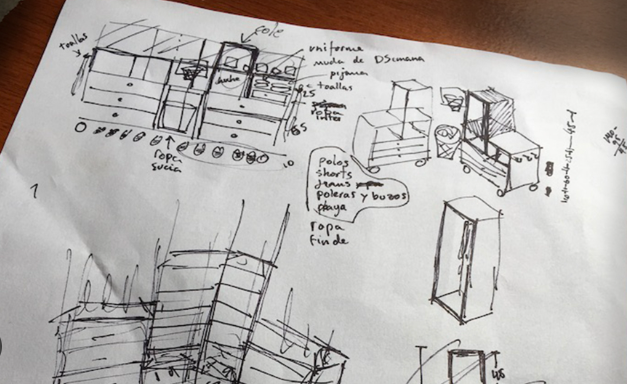 cole
toallas
uniforme
muda de DSmana
pijama
toallas
25
ropa
65
ropa
sucia
polos
shorts
jeans
poleras y buzos
playa
ropa
finde
1
45